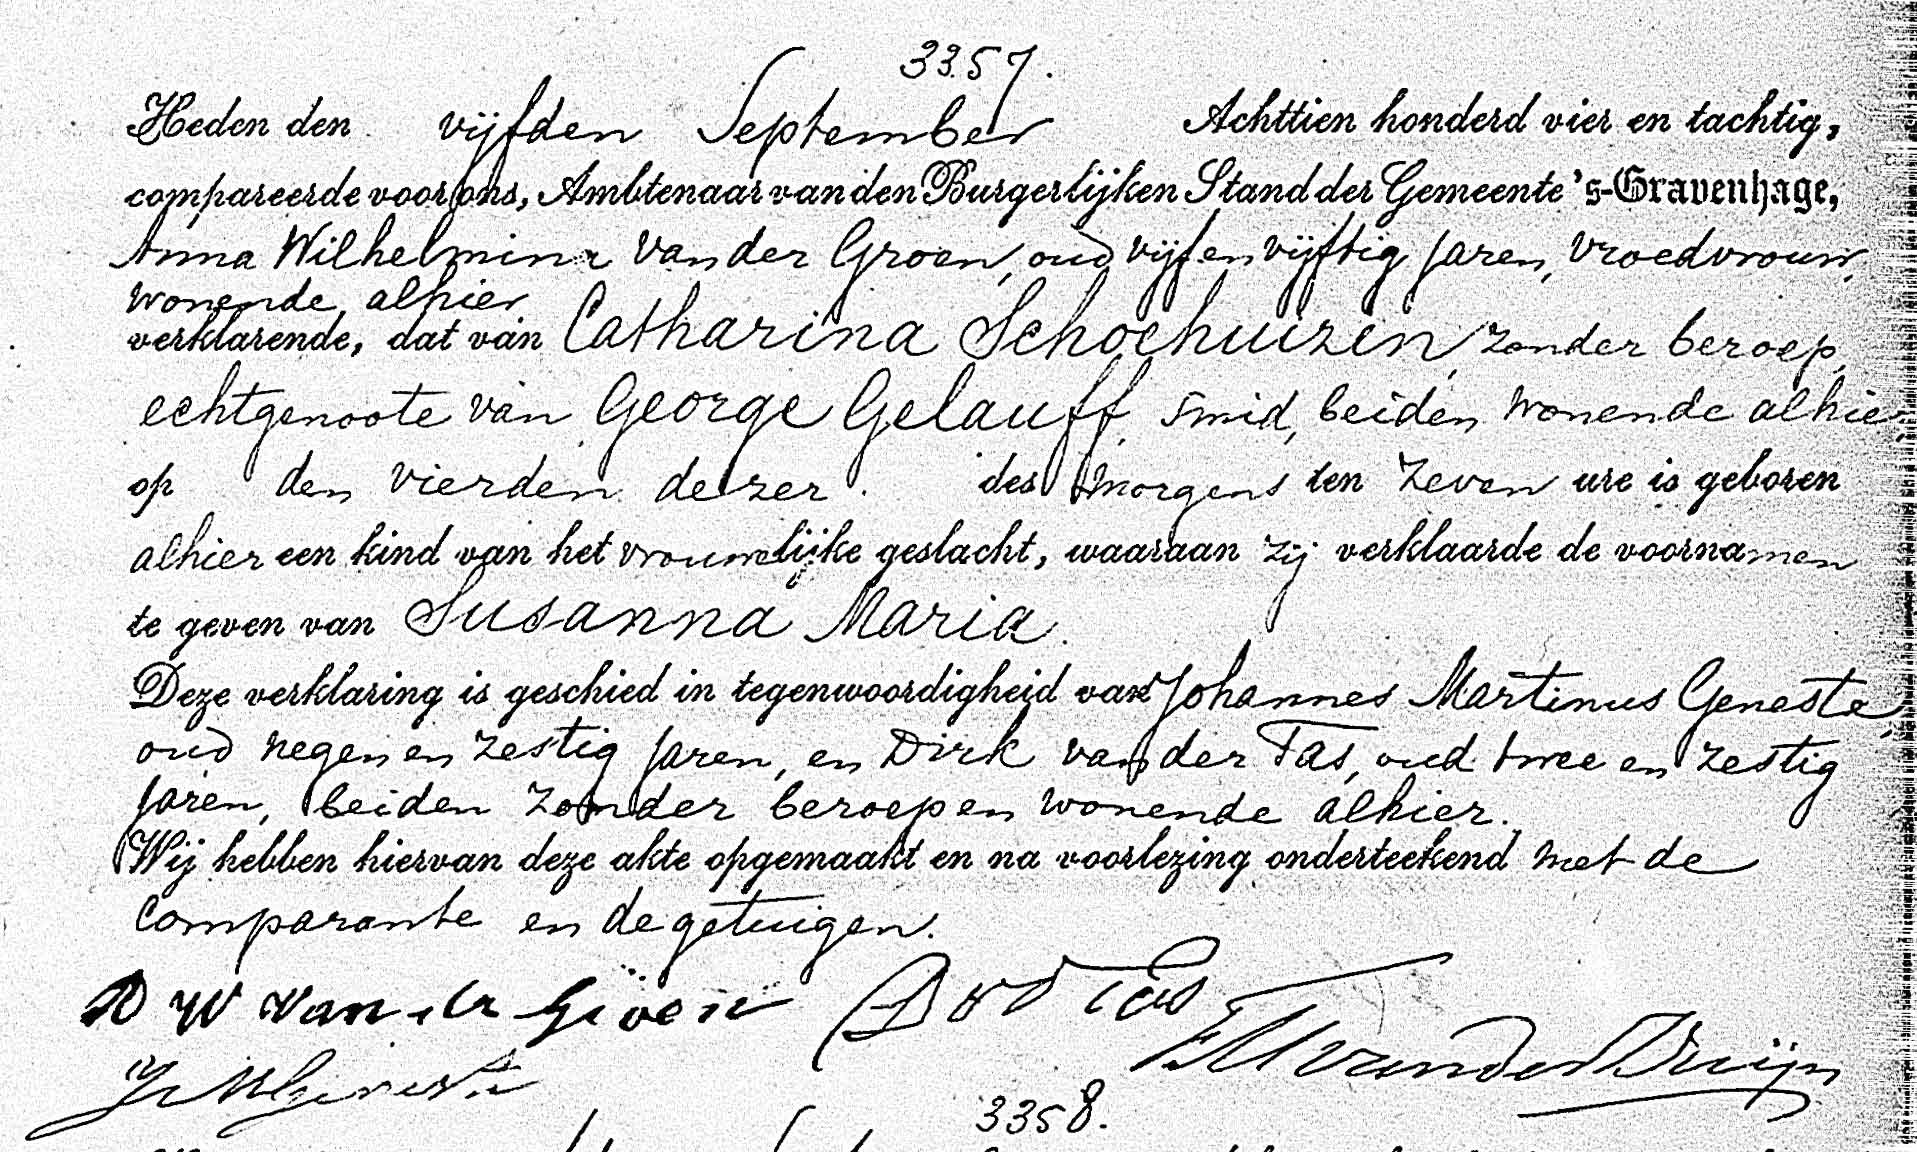 3357.
Heden den vijfden September Achttien honderd vier en tachtig,
compareerde voor ons, Ambtenaar van den Burgerlijken Stand der Gemeente 's-Gravenhage,
Anna Wilhelmina van der Groen, oud vijf en vijftig jaren, vroedvrouw,
wonende alhier
verklarende, dat van Catharina Schoehuizen, zonder beroep,
echtgenoote van George Gelauff, smid, beiden wonende alhier,
op den vierden dezer des morgens ten zeven ure is geboren
alhier een kind van het vrouwelijke geslacht, waaraan zij verklaarde de voornamen
te geven van Susanna Maria.
Deze verklaring is geschied in tegenwoordigheid van Johannes Martinus Geneste,
oud negen en zestig jaren, en Dirk van der Tas, oud twee en zestig
jaren, beiden zonder beroep en wonende alhier.
Wij hebben hiervan deze akte opgemaakt en na voorlezing onderteekend met de
comparante en de getuigen.
W van der Groen D v d Tas
van der Kruijn
JM Geneste
3358.